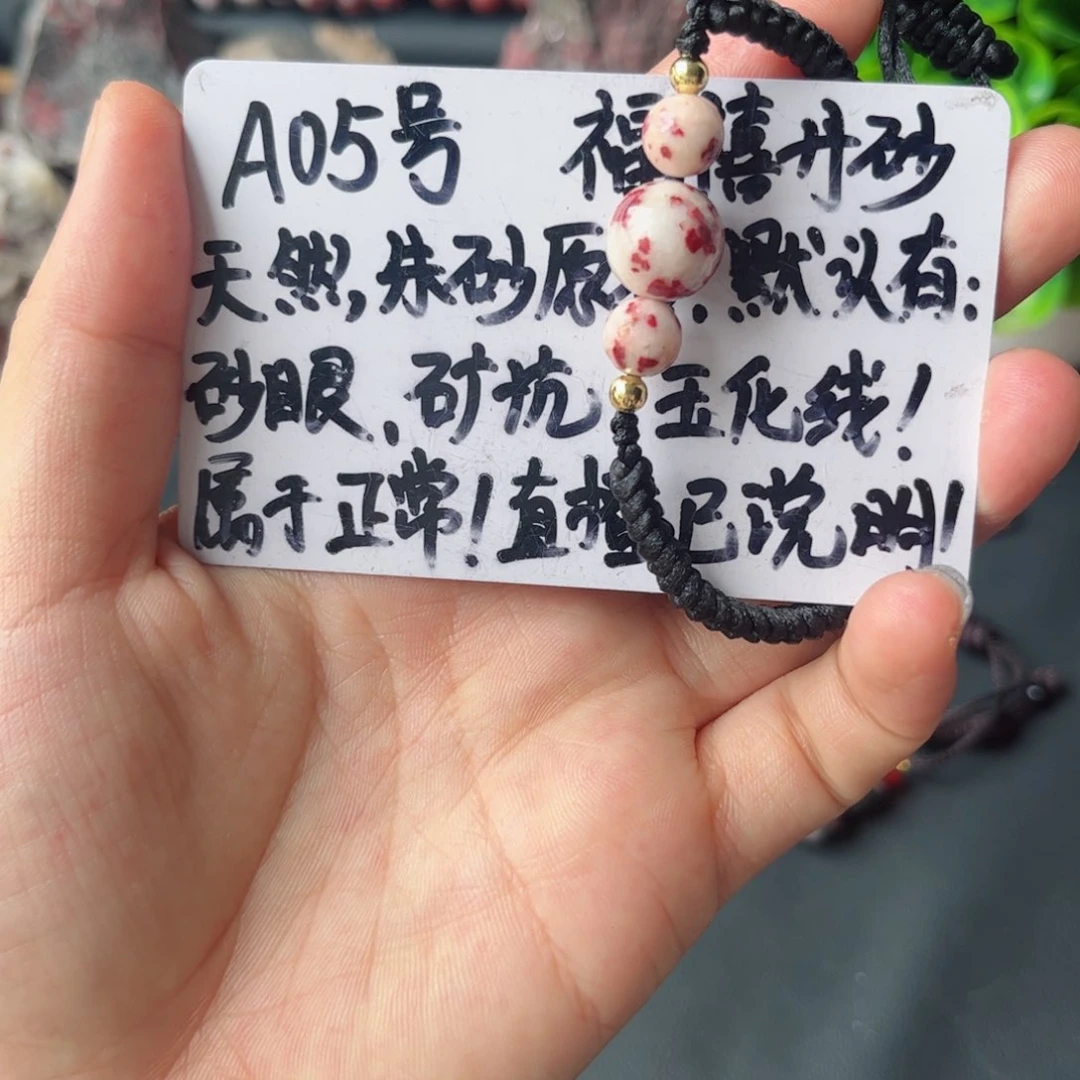 A05号 福禧丹砂
天然,朱砂原.默认有:
砂眼、矿坑玉化线!
属于正常!直播已说明!